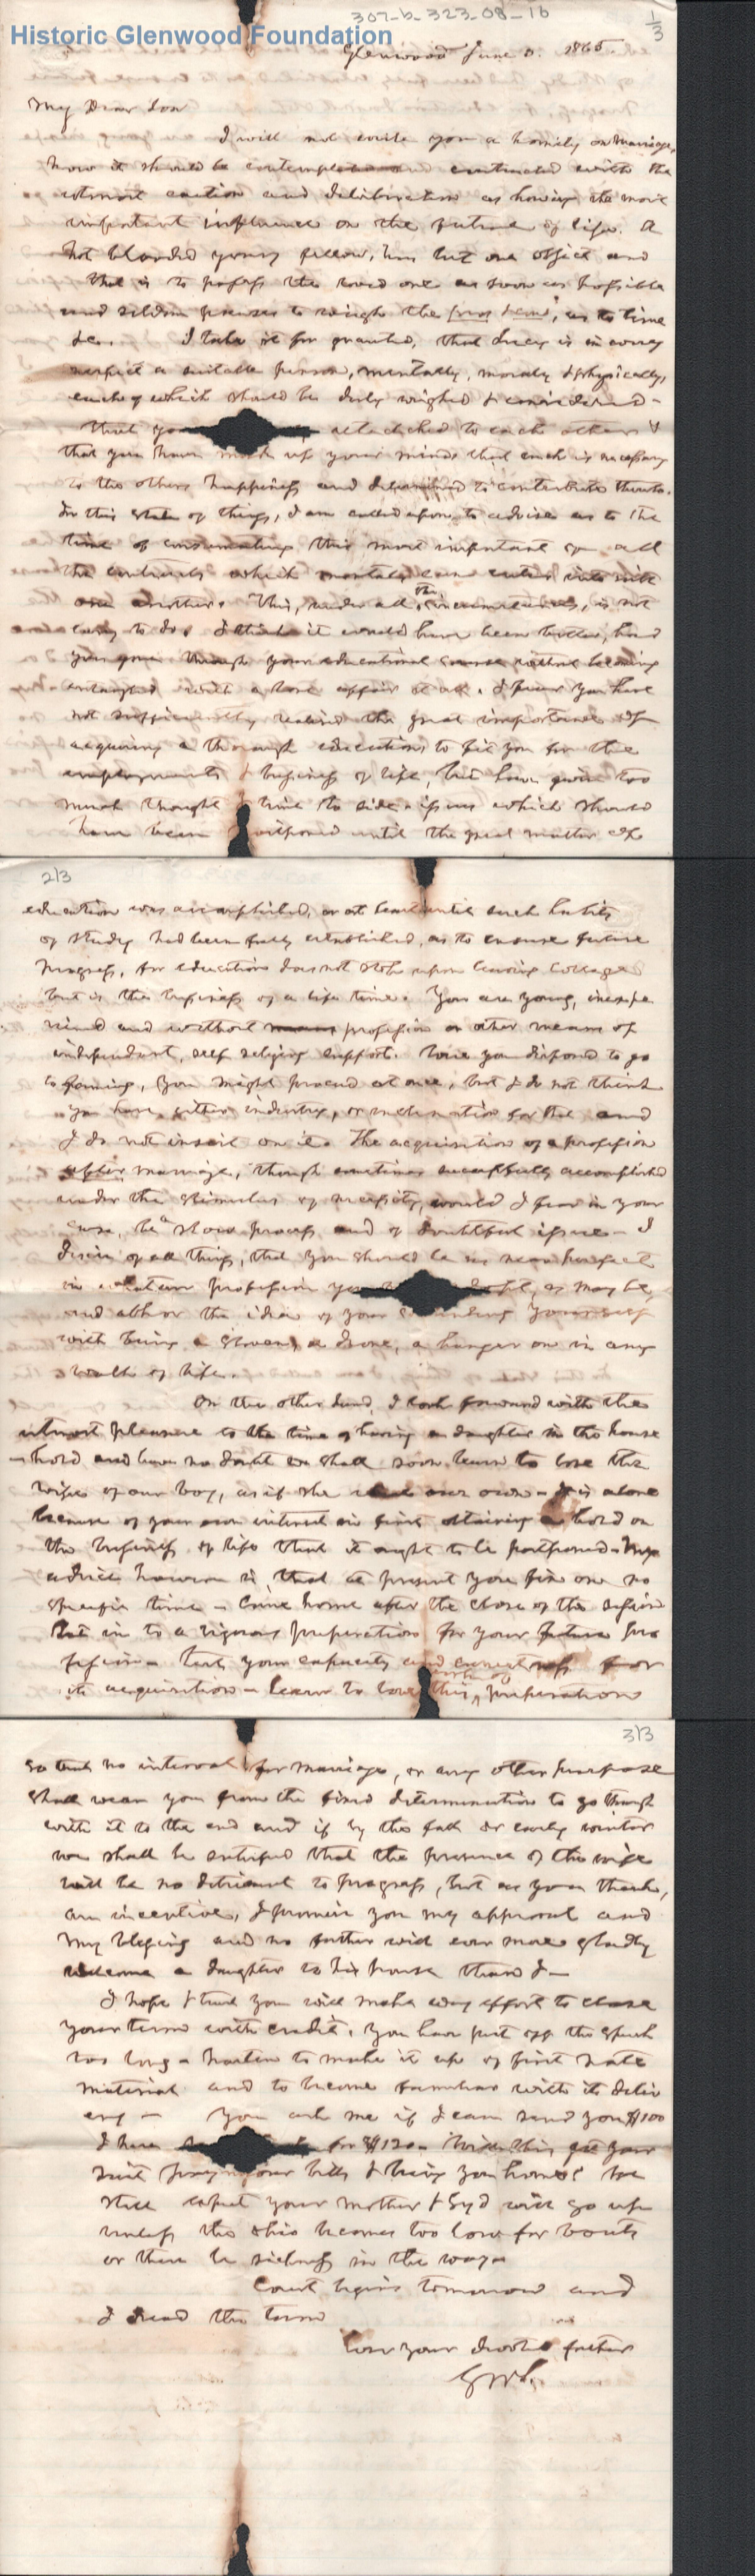 307-b-323-08-16
1/3
Historic Glenwood Foundation
Glenwood June 1865
My Dear Son
I will not write you a homily on marriage,
how it should be contemplated and contracted with the
utmost caution and deliberation as having the most
important influence on the future of life. A
hot blooded young fellow, has but one object and
that is to possess the loved one as soon as possible
and seldom pauses to weigh the pros & cons, as to time
&c. I take it for granted, that Lucy is in every
respect a suitable person, mentally, morally & physically,
each of which should be duly weighed & considered -
that you attached to each other &
that you have made up your minds that each is necessary
to the others happiness and determined to contribute thereto.
In this state of things, I am called upon to advise as to the
time of consummating this most important of all
the contracts which mortals can enter into with
one another. This, under all the circumstances, is not
easy to do. I think it would have been better, had
you gone through your educational course without becoming
entangled with a love affair at all. I fear you have
not sufficiently realised the great importance of
acquiring a thorough education to fit you for the
employments & business of life, but have given too
much thought & time to side issues which should
have been postponed until the great matter of
2/3
education was accomplished, or at least until such habits
of study had been fully established, as to ensure future
progress, for education does not stop upon leaving College
but is the business of a life time. You are young, inexpe
rienced and without means profession or other means of
independent, self relying support. Were you disposed to go
to farming, you might proceed at once, but I do not think
you have either industry, or inclination for that and
I do not insist on it. The acquisition of a profession
after marriage, though sometimes successfully accomplished
under the stimulus of necessity, would I fear in your
case, be a slow process and of doubtful issue - I
desire of all things, that you should be as near perfect
in whatever profession you as may be,
and abhor the idea of your yourself
with being a sloven, a drone, a hanger on in any
walk of life.
On the other hand, I look forward with the
utmost pleasure to the time of having a daughter in the house
hold and have no doubt we shall soon learn to love the
wife of our boy, as if she were our own - It is alone
because of your own interest in first obtaining a hold on
the business of life that it ought to be postponed. My
advice however is, that at present you fix on no
specific time - Come home after the close of the session
Set in to a vigorous preparation for your future pro
fession - test your capacity and earnestness for
its acquisition - learn to love this work of preparation
3/3
so that no interval for marriage, or any other purpose
shall wean you from the fixed determination to go through
with it to the end and if by the fall or early winter
we shall be satisfied that the presence of the wife
will be no detriment to progress, but as you think,
an incentive, I promise you my approval and
my blessing and no father will ever more gladly
welcome a daughter to his house than I -
I hope & trust you will make every effort to close
your term with credit. You have put off the speech
too long - hasten to make it up of first rate
material and to become familiar with its deliv
ery - You ask me if I can send you $100
I have for $120 - With this get your
suit pay your bills & bring you home. We
still expect your mother & Syd will go up
unless the Ohio becomes too low for boats
or there be sickness in the way -
Court begins tomorrow and
I dread the term
Ever your devoted father